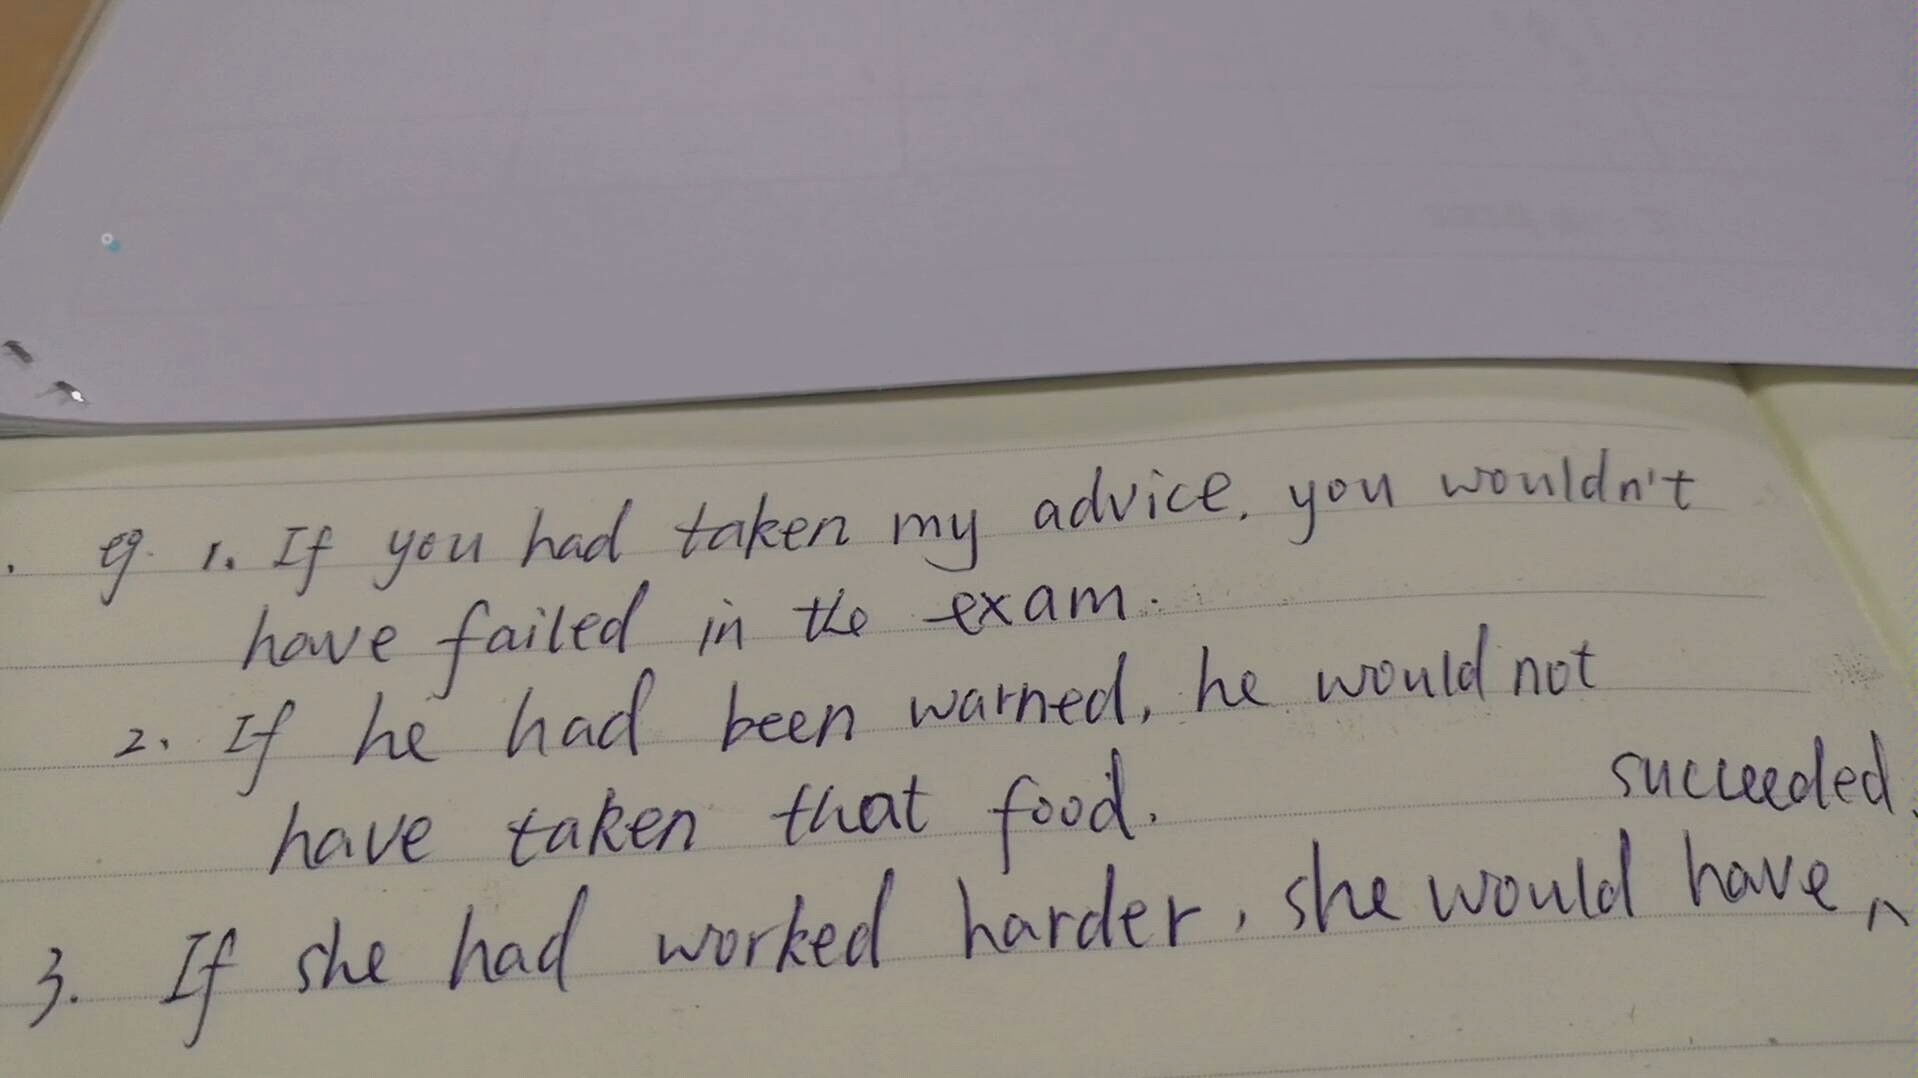 eg. 1. If you had taken my advice, you wouldn't
have failed in the exam.
2. If he had been warned, he would not
have taken that food.
3. If she had worked harder, she would have ^ succeeded.